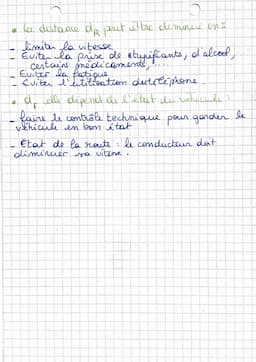 • la distance dR peut être diminuée en :
- limiter la vitesse
- Eviter la prise de stupéfiants, d'alcool,
certains médicaments, ...
- Eviter la fatigue
- Eviter l'utilisation du téléphone.
• df elle dépend de l'état du véhicule :
- faire le contrôle technique pour garder le
véhicule en bon état
- Etat de la route : le conducteur doit
diminuer sa vitesse.